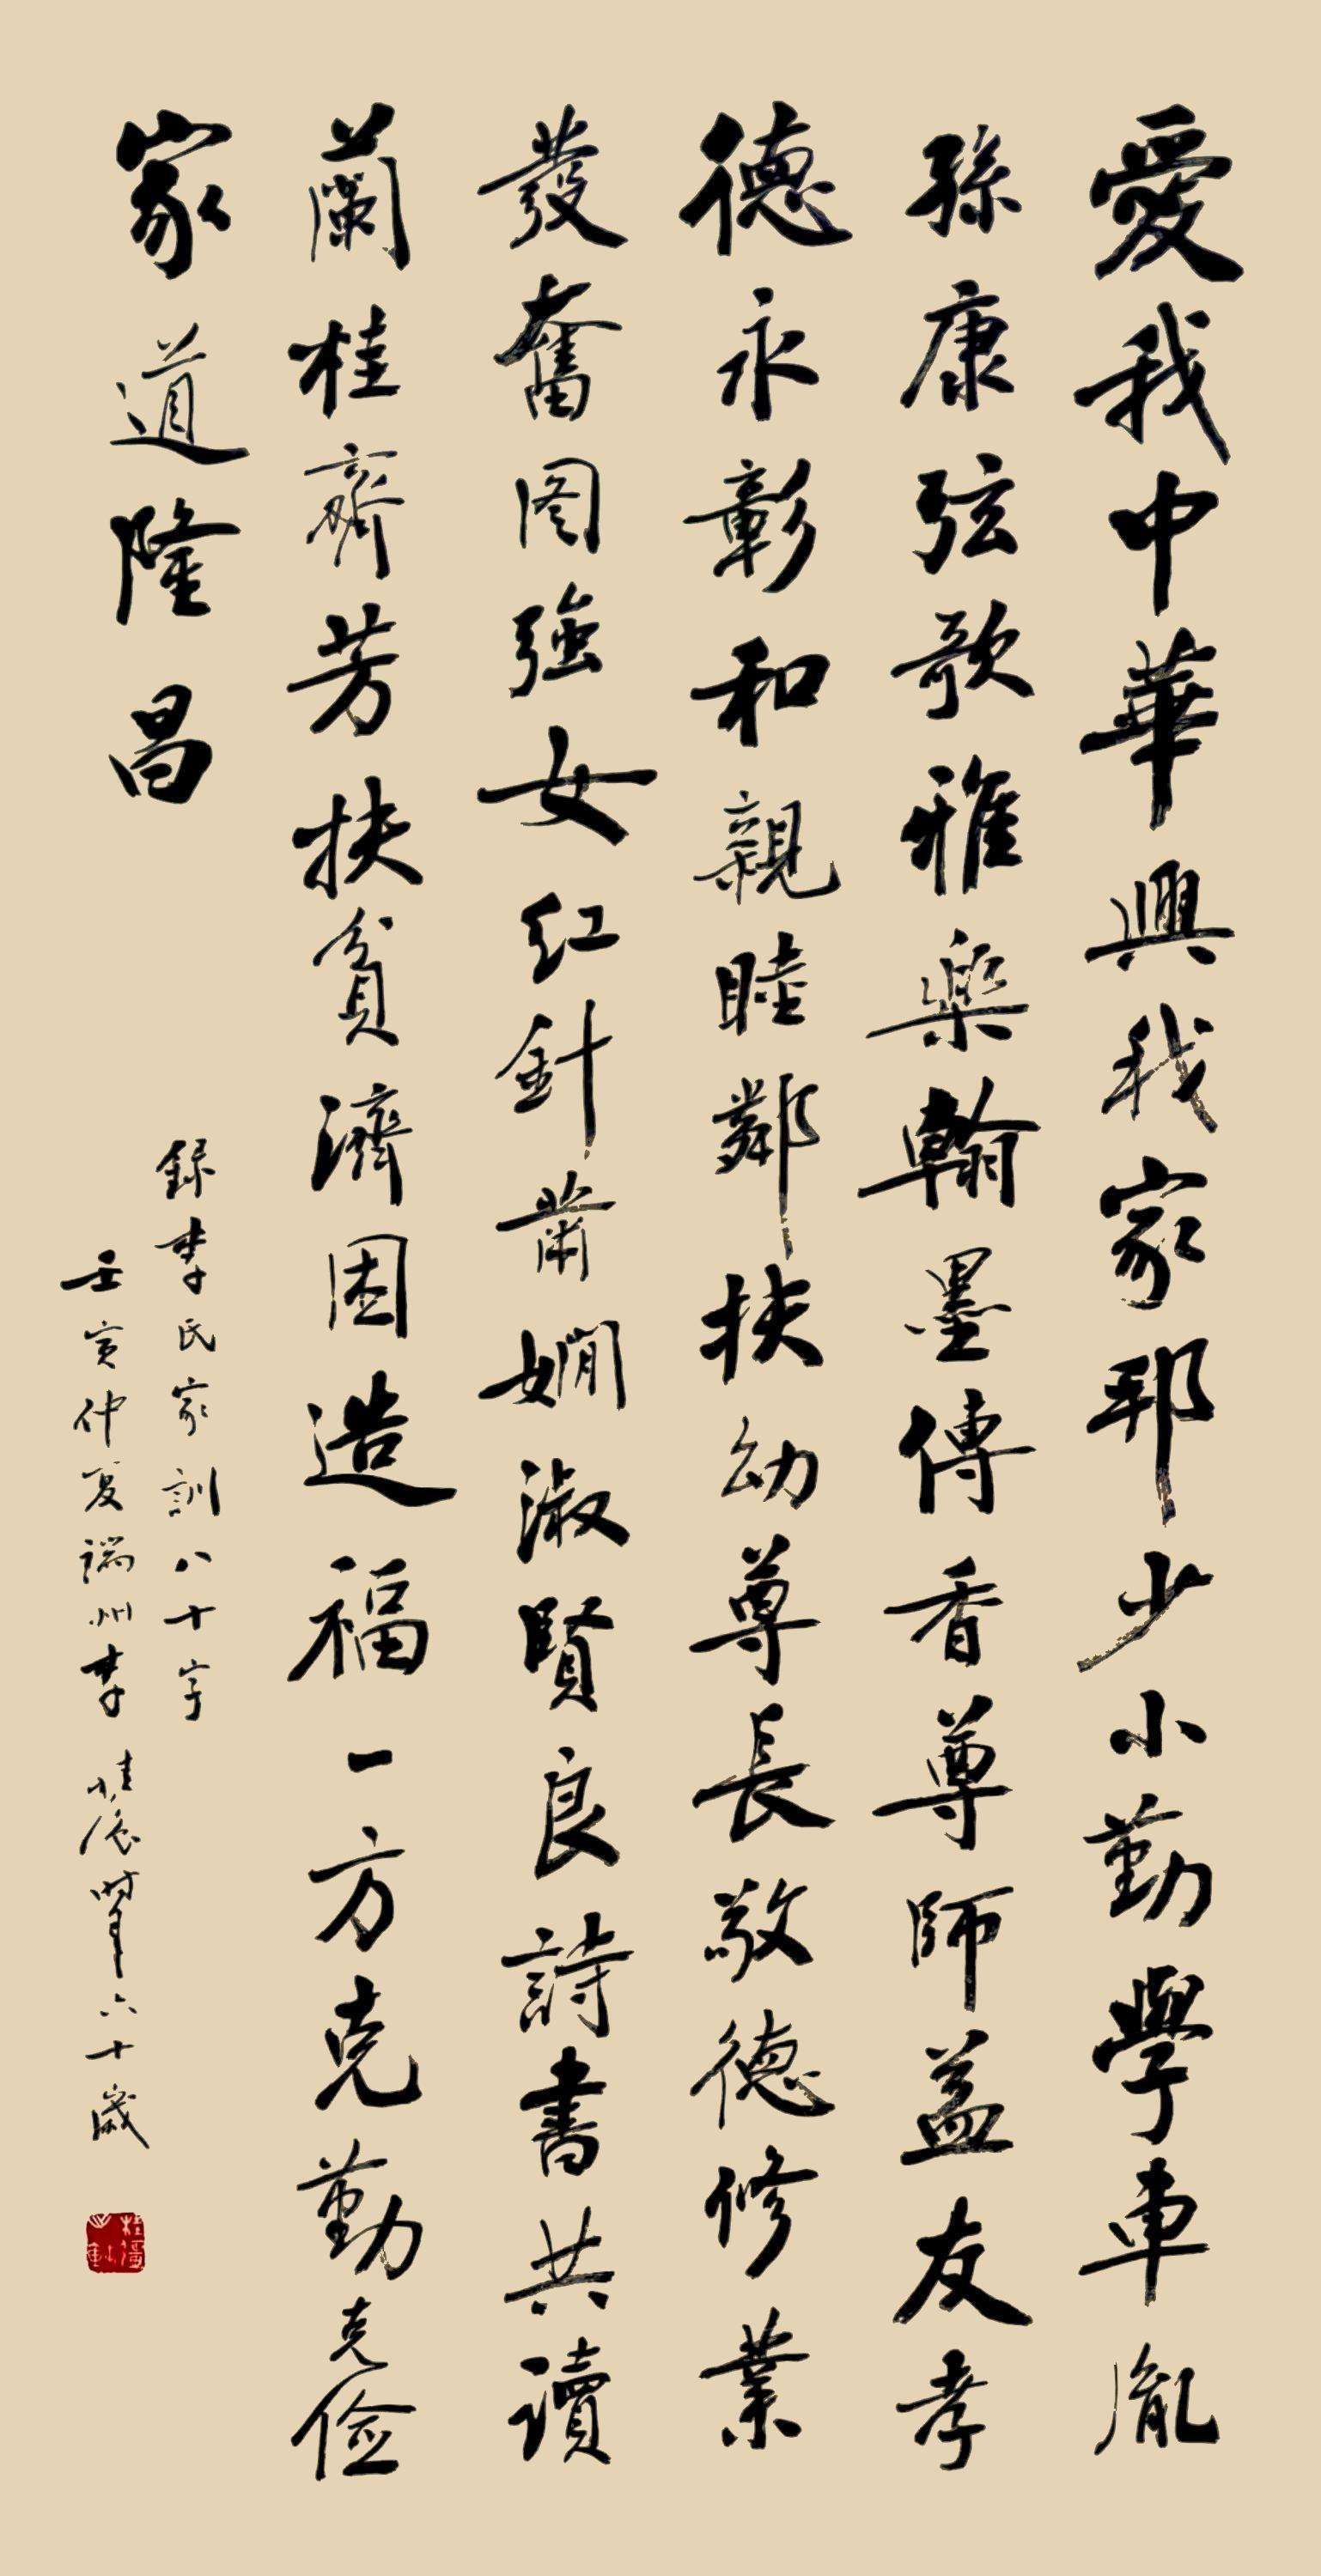 愛我中華興我家邦少小勤學車胤
孫康弦歌雅樂翰墨傳香尊師益友孝
德永彰和親睦鄰扶幼尊長敬德修業
發奮图強女红針黹嫻淑賢良詩書共讀
蘭桂齊芳扶貧濟困造福一方克勤克俭
家道隆昌
録李氏家訓八十字
壬寅仲夏端州李桂〇時年六十歲